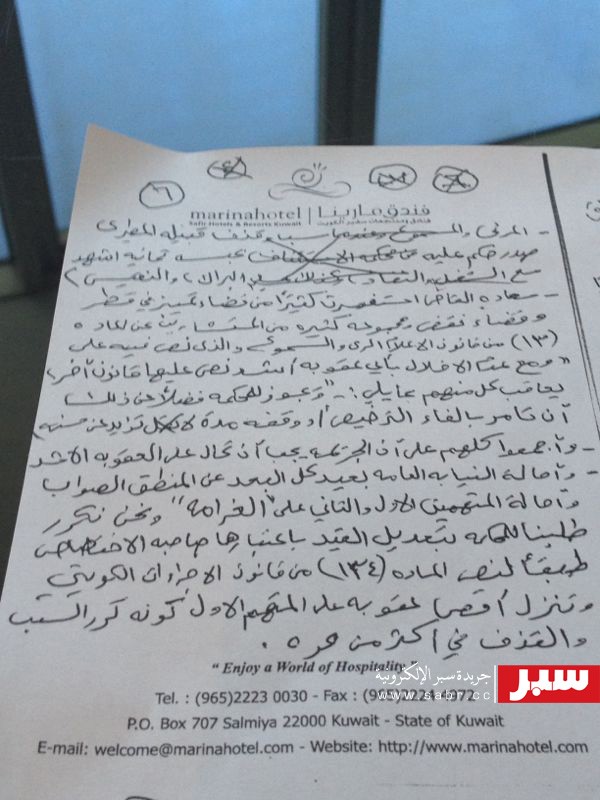 ٦
marinahotel | فندق مارينا
Safir Hotels & Resorts Kuwait فنادق ومنتجعات سفير الكويت
- المرئي و سب وقذف قبيله المطيرى
صدور حكم عليه من محكمه الاستئناف بحبسه ثمانيه اشهر
مع
- سعادة القاضى استغربت كثيرًا من قضاء تمييز في قطر
وقضاء نقض ومجموعه كثيره من المستشارين عن الماده
(١٣) من قانون الاعلام المرئى والمسموع والذى نص فيه على
"ومع عدم الاخلال بأى عقوبه أشد نص عليها قانون آخر،
يعاقب كل منهم بمايلي: - ويجوز للمحكمه فضلاً عن ذلك
أن تأمر بالغاء الترخيص أو وقفه مدة لا تزيد عن سنه
- وأجمعوا كلهم على أن الجريمه يجب أن تحال على العقوبه الاشد
- وأحالة النيابه العامه بعيد كل البعد عن المنطق الصواب
وأحالة المتهمين الاول والثانى على "الغرامة" ونحن نكرر
طلبنا للمحكمه بتعديل القيد باعتبارها صاحبه الاختصاص
طبقاً لنص الماده (١٣٤) من قانون الاجراءات الكويتي
وتنزل أقصى عقوبه على المتهم الاول كونه كرر السب
والقذف في أكثر من مره .
"Enjoy a World of Hospitality"
Tel. : (965)2223 0030 - Fax :
P.O. Box 707 Salmiya 22000 Kuwait - State of Kuwait
E-mail: welcome@marinahotel.com - Website: http://www.marinahotel.com
جريدة سبر الإلكترونية
www.sabr.cc
سبر